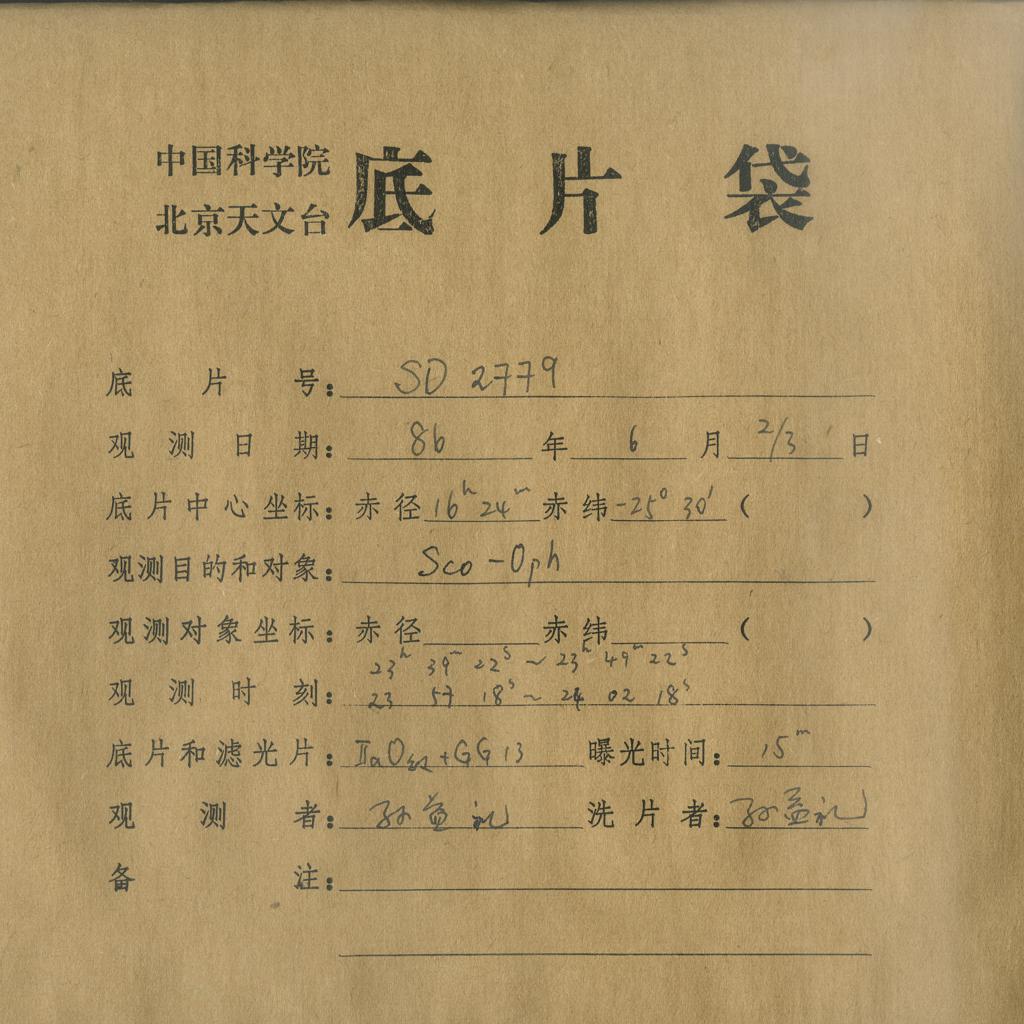 中国科学院
北京天文台 底片袋
底片号: SD 2779
观测日期: 86 年 6 月 2/3 日
底片中心坐标: 赤径 16h 24m 赤纬 -25° 30′ ( )
观测目的和对象: Sco-Oph
观测对象坐标: 赤径 赤纬 ( )
23h 39m 22s ~ 23h 49m 22s
观测时刻: 23 57 18s ~ 24 02 18s
底片和滤光片: IIaO + GG 13 曝光时间: 15m
观测者: 孙益礼 洗片者: 孙益礼
备注: